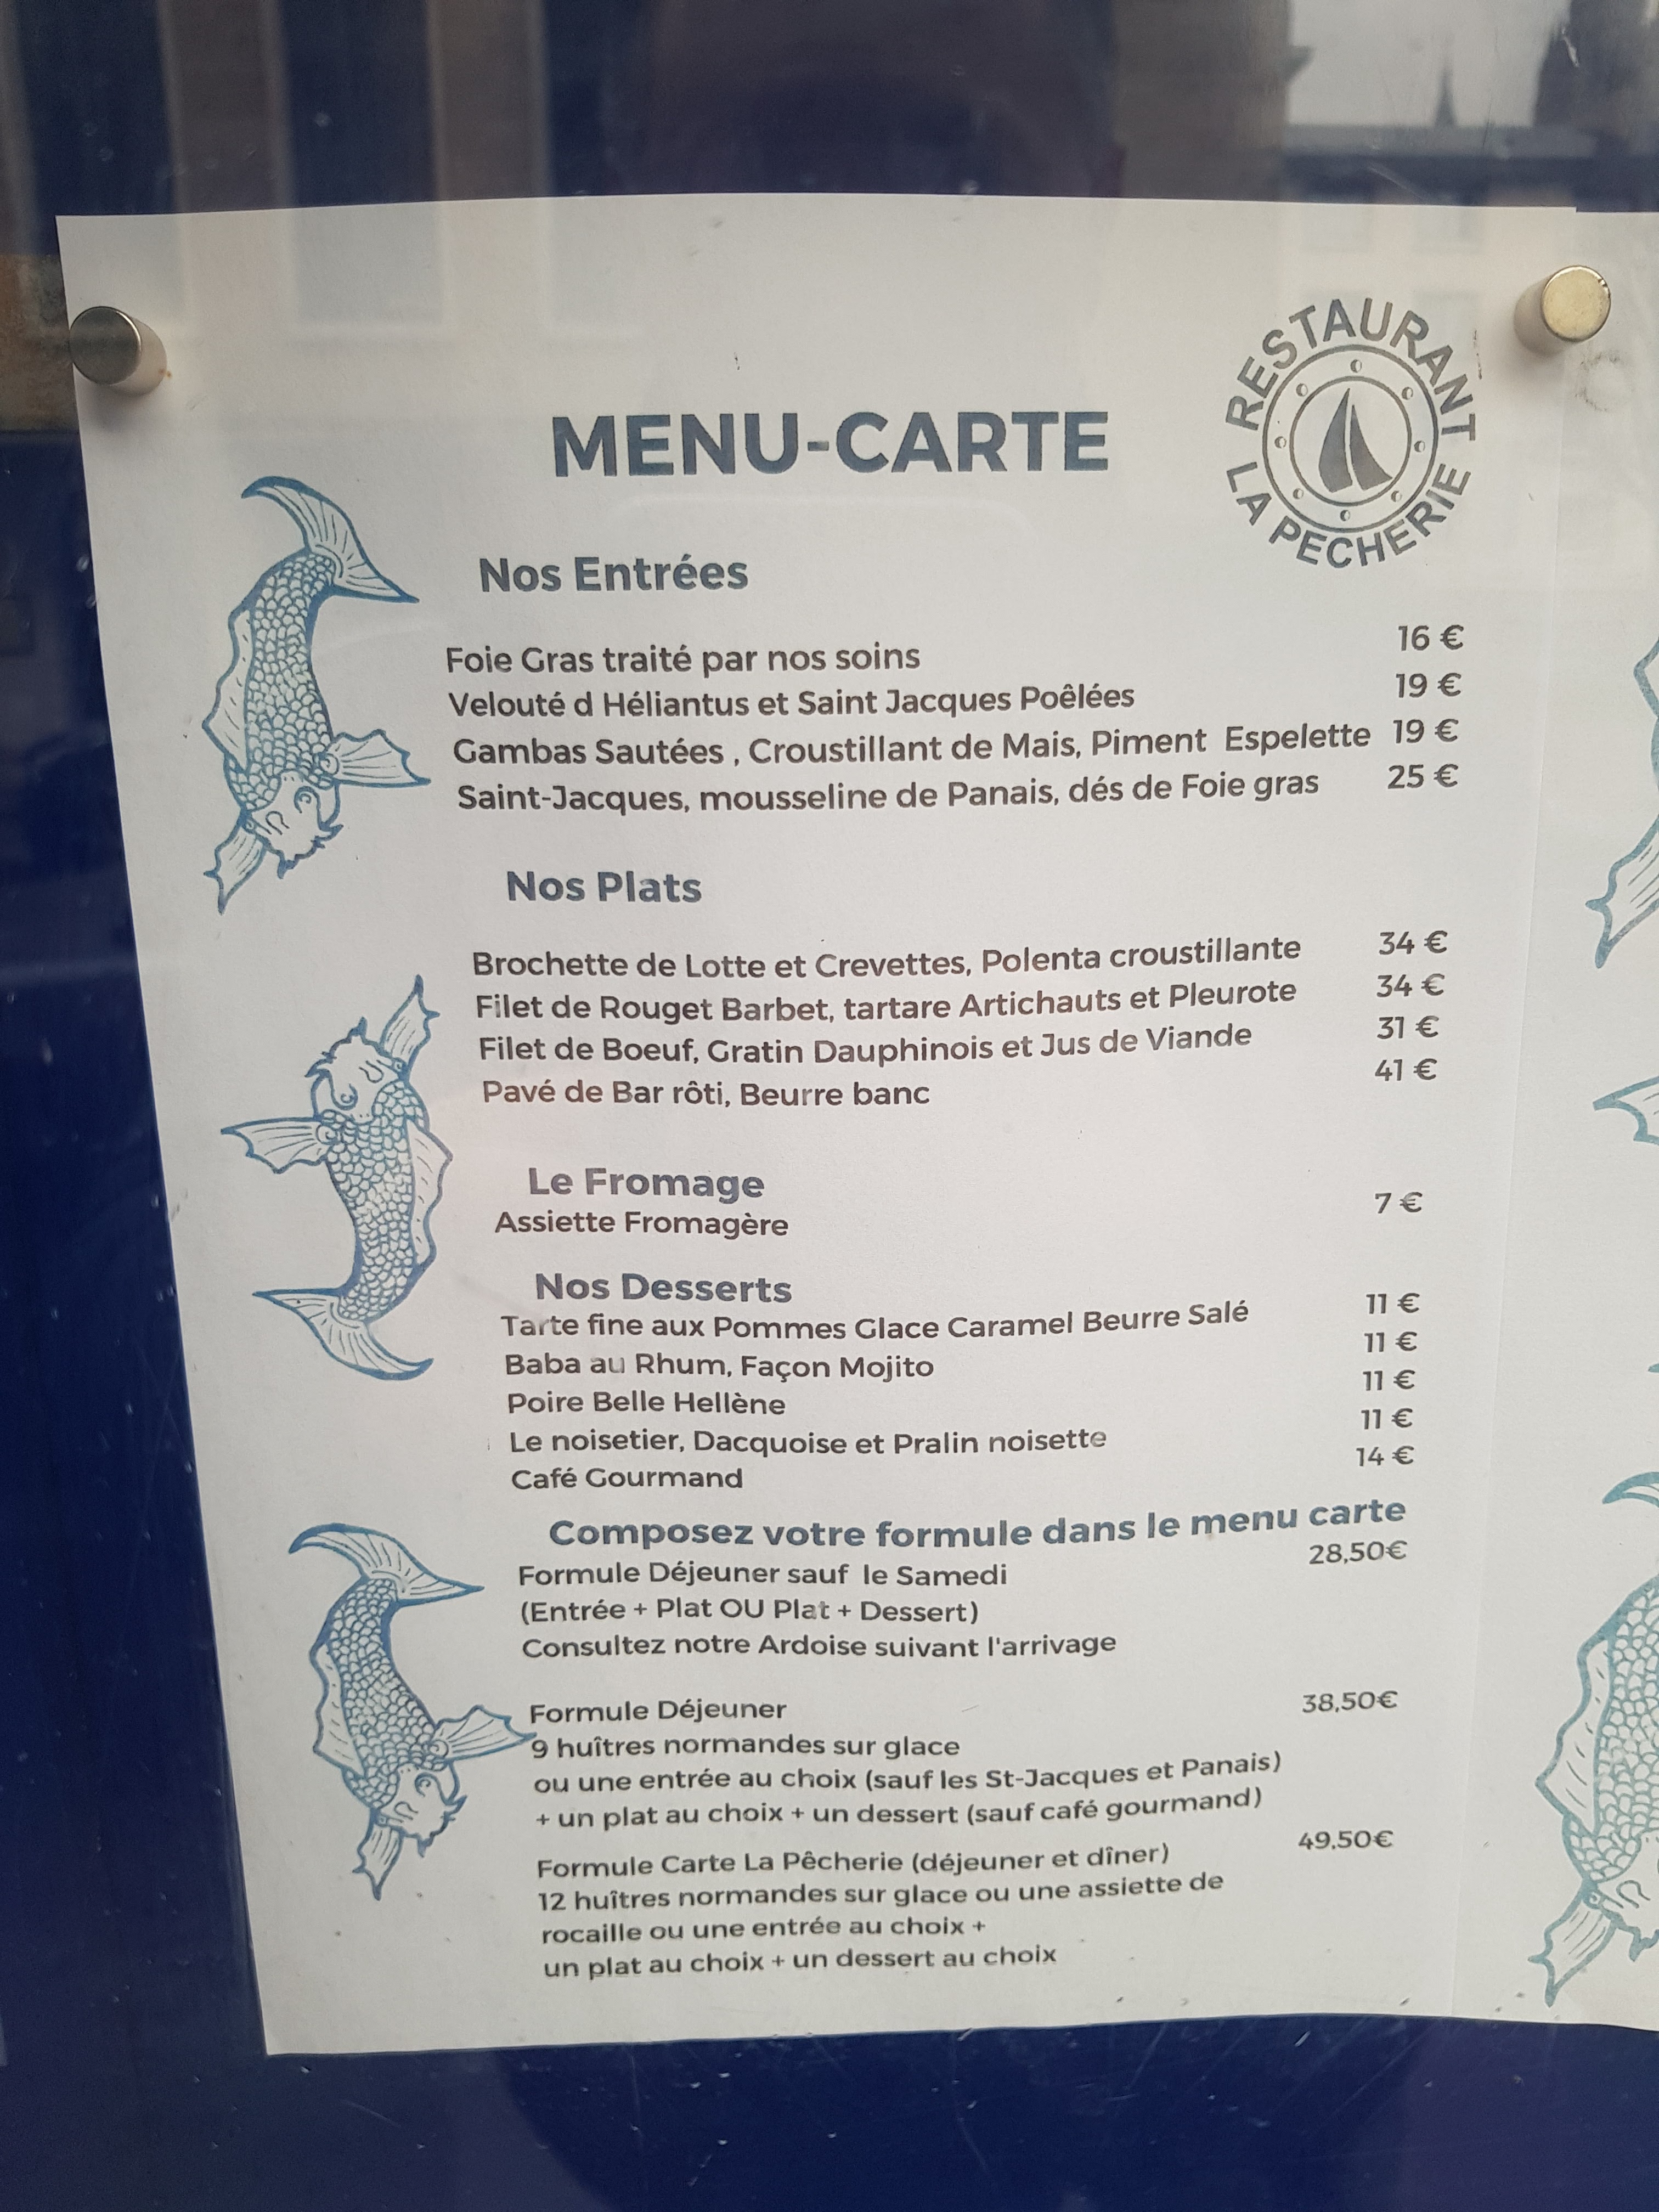 RESTAURANT
LA PECHERIE
MENU-CARTE
Nos Entrées
Foie Gras traité par nos soins 16 €
Velouté d Héliantus et Saint Jacques Poêlées 19 €
Gambas Sautées , Croustillant de Mais, Piment Espelette 19 €
Saint-Jacques, mousseline de Panais, dés de Foie gras 25 €
Nos Plats
Brochette de Lotte et Crevettes, Polenta croustillante 34 €
Filet de Rouget Barbet, tartare Artichauts et Pleurote 34 €
Filet de Boeuf, Gratin Dauphinois et Jus de Viande 31 €
Pavé de Bar rôti, Beurre banc 41 €
Le Fromage
Assiette Fromagère 7 €
Nos Desserts
Tarte fine aux Pommes Glace Caramel Beurre Salé 11 €
Baba au Rhum, Façon Mojito 11 €
Poire Belle Hellène 11 €
Le noisetier, Dacquoise et Pralin noisette 11 €
Café Gourmand 14 €
Composez votre formule dans le menu carte
Formule Déjeuner sauf le Samedi 28,50€
(Entrée + Plat OU Plat + Dessert)
Consultez notre Ardoise suivant l'arrivage
Formule Déjeuner 38,50€
9 huîtres normandes sur glace
ou une entrée au choix (sauf les St-Jacques et Panais)
+ un plat au choix + un dessert (sauf café gourmand)
Formule Carte La Pêcherie (déjeuner et dîner) 49,50€
12 huîtres normandes sur glace ou une assiette de
rocaille ou une entrée au choix +
un plat au choix + un dessert au choix